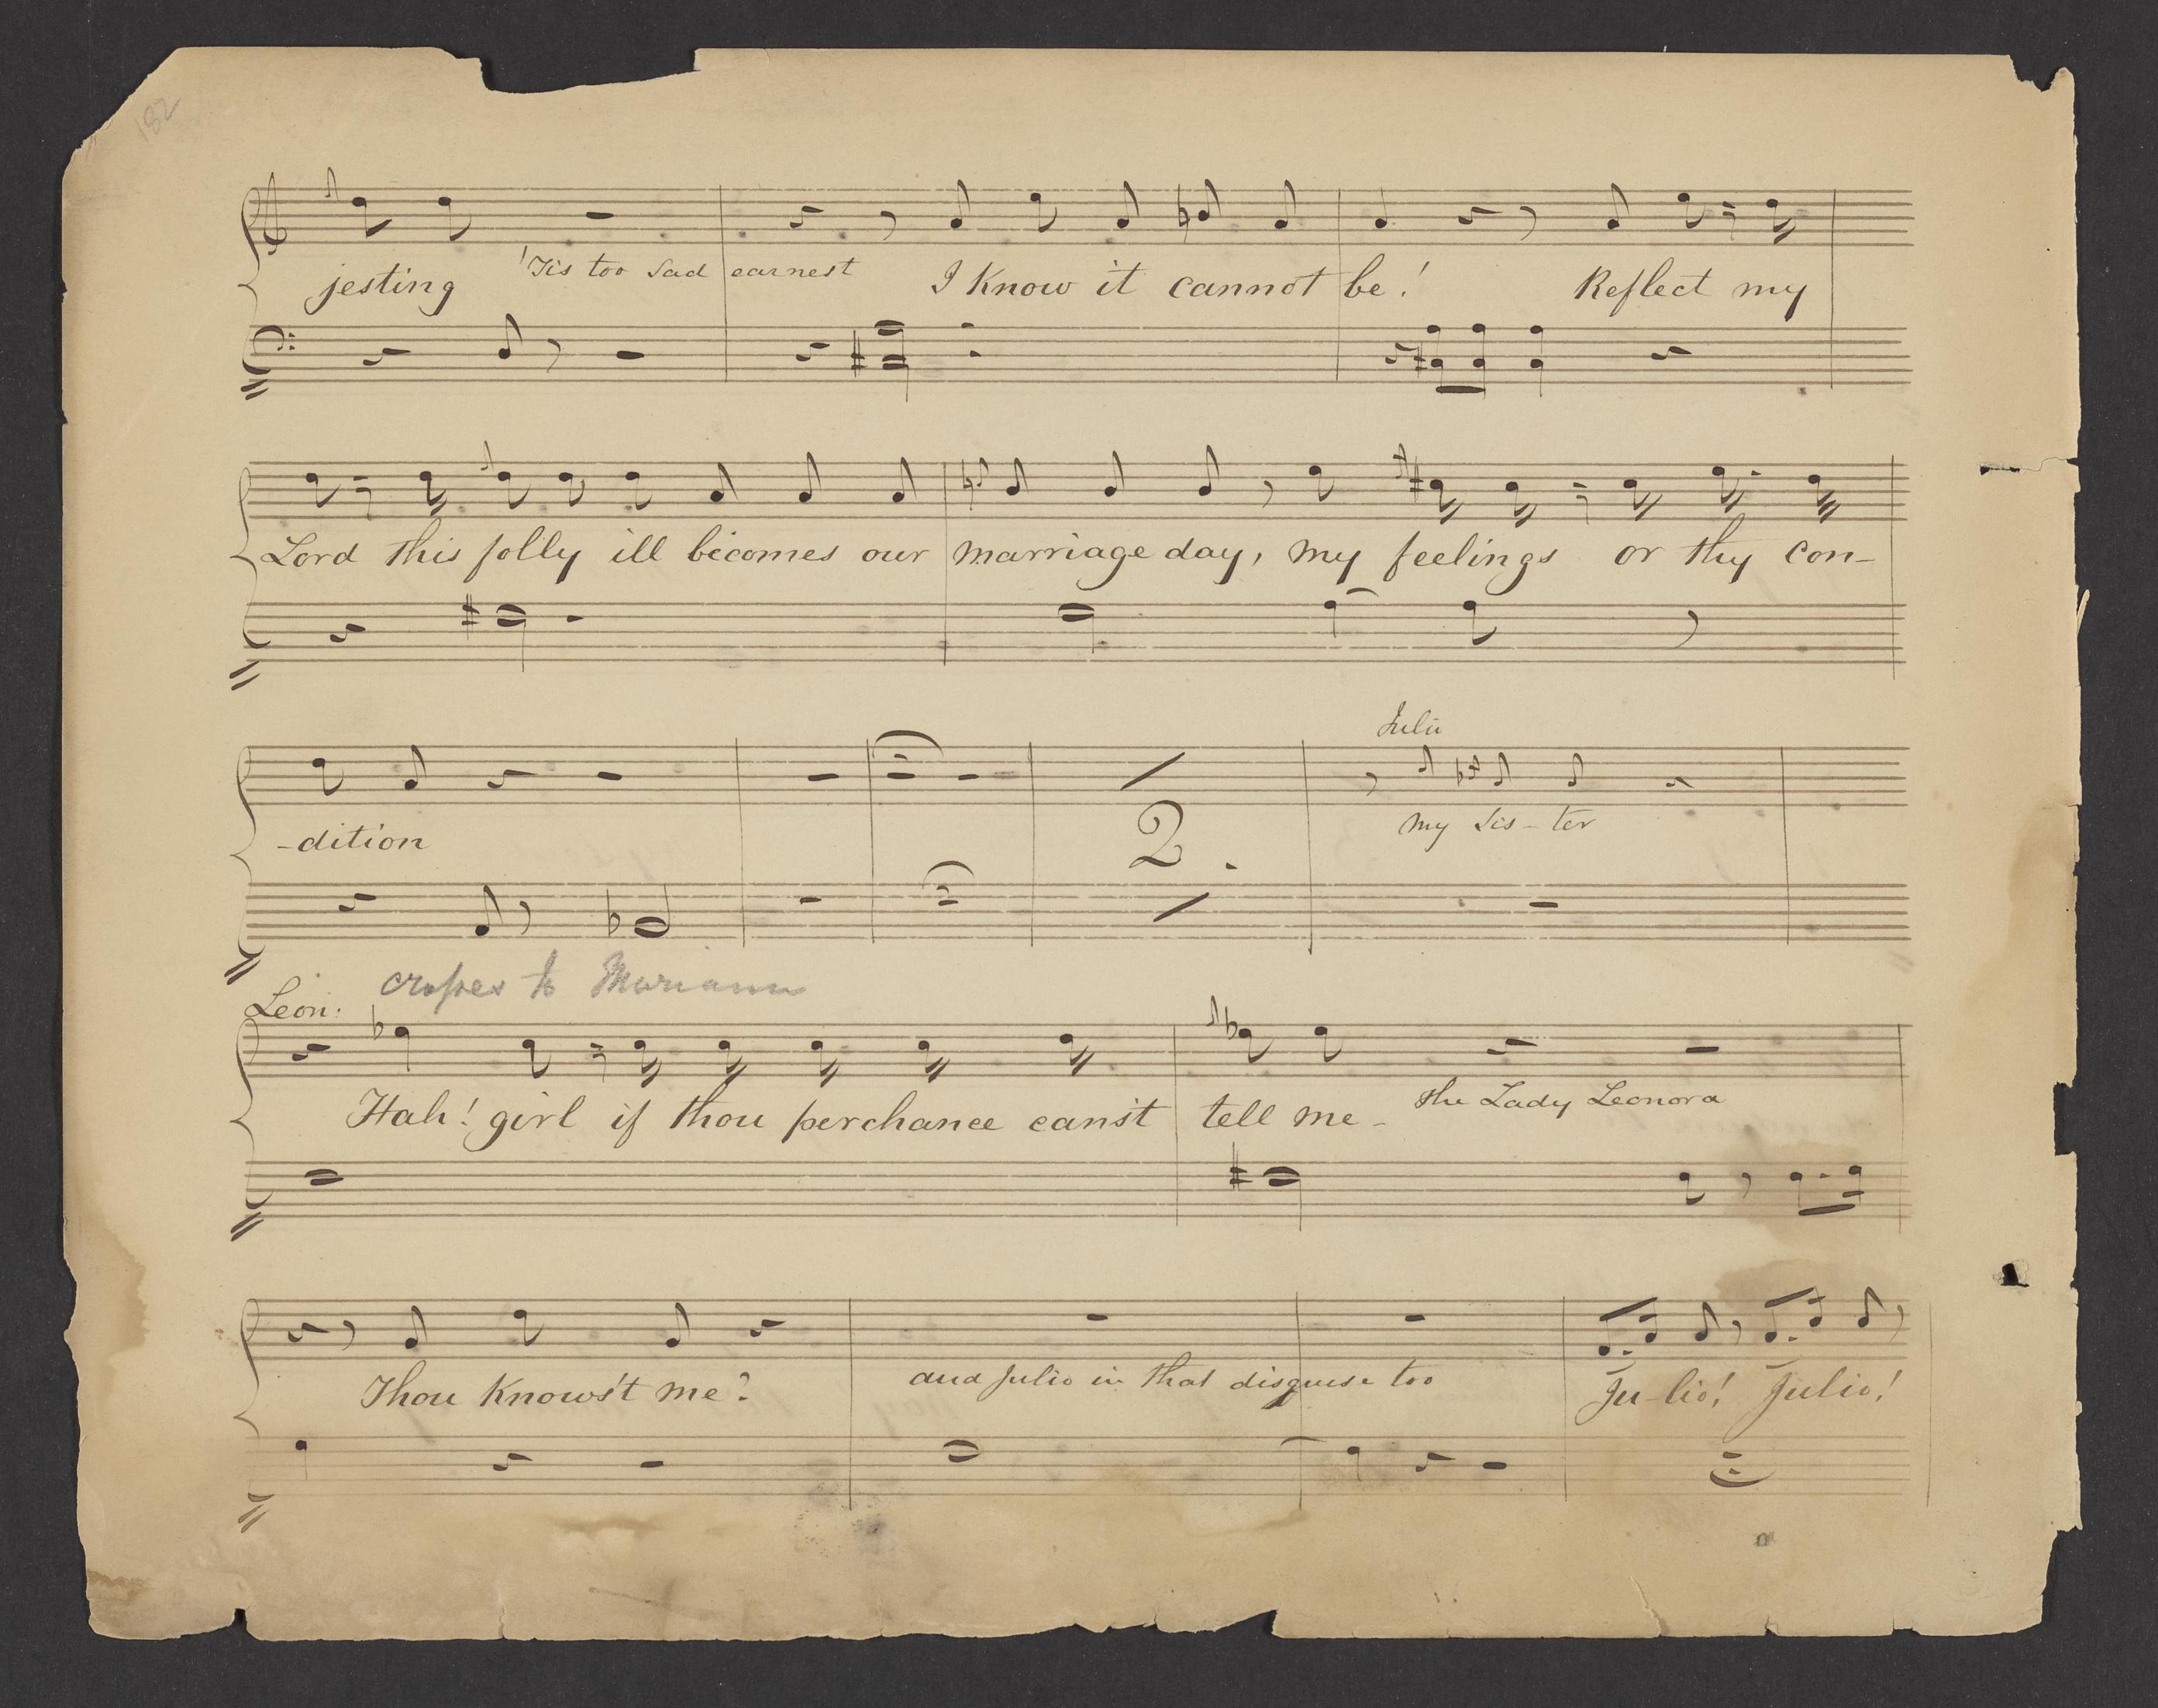 182
jesting 'Tis too sad earnest I Know it cannot be! Reflect my
Lord this folly ill becomes our marriage day, my feelings or thy con-
Julio
-dition 2. my sis-ter
crosses to Mariana
Leon:
Hah! girl if thou perchance canst tell me - the Lady Leonora
Thou Know'st me? and Julio in that disguise too Ju-lio! Julio!